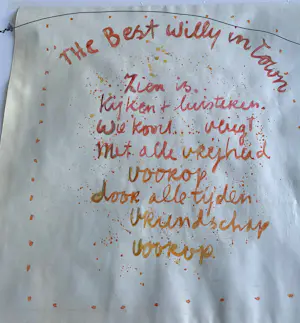 The Best Willy in Town
Zien is.
Kijken + luisteren.
Wie komt.... vlug!
Met alle vrijheid
voorop
door alle tijden.
vriendschap
voorop.